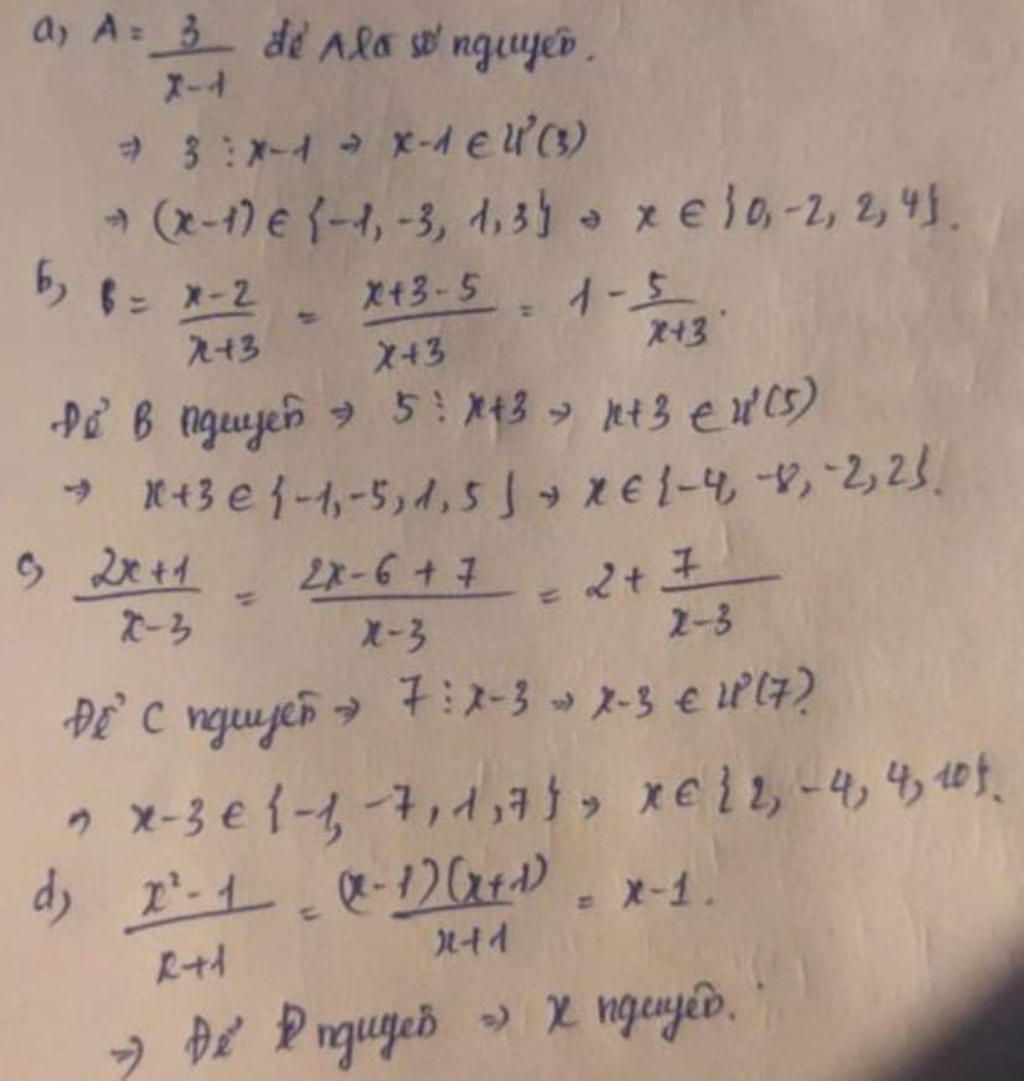 a, A = 3/(x-1) để A là số nguyên.
⇒ 3 ⋮ x-1 → x-1 ∈ Ư(3)
→ (x-1) ∈ {-1, -3, 1, 3} → x ∈ {0, -2, 2, 4}.
b, B = (x-2)/(x+3) = (x+3-5)/(x+3) = 1 - 5/(x+3).
Để B nguyên → 5 ⋮ x+3 → x+3 ∈ Ư(5)
→ x+3 ∈ {-1, -5, 1, 5} → x ∈ {-4, -8, -2, 2}.
c, (2x+1)/(x-3) = (2x-6+7)/(x-3) = 2 + 7/(x-3)
Để C nguyên → 7 ⋮ x-3 → x-3 ∈ Ư(7)
→ x-3 ∈ {-1, -7, 1, 7} → x ∈ {2, -4, 4, 10}.
d, (x²-1)/(x+1) = (x-1)(x+1)/(x+1) = x-1.
⇒ Để D nguyên ⇒ x nguyên.